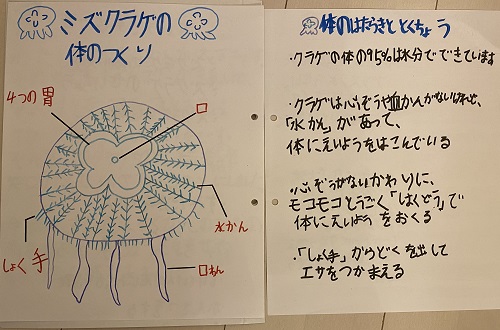 ミズクラゲの
体のつくり
4つの胃
口
水かん
しょく手
口わん
体のはたらきととくちょう
・クラゲの体の95%は水分でできています
・クラゲは心ぞうや血かんがないけれど、
「水かん」があって、
体にえいようをはこんでいる
・心ぞうがないかわりに、
モコモコとうごく「はくどう」で
体にえいようをおくる
・「しょく手」からどくを出して
エサをつかまえる